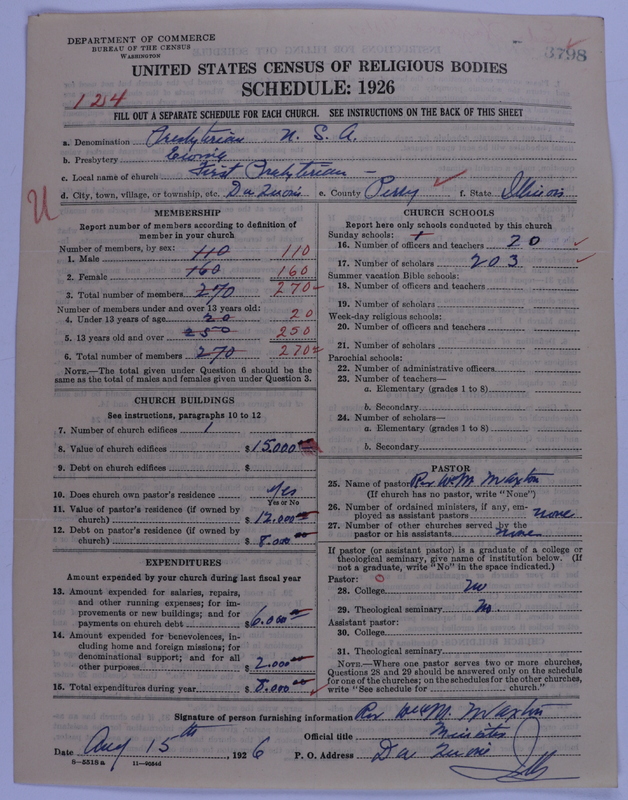 DEPARTMENT OF COMMERCE
BUREAU OF THE CENSUS
WASHINGTON
3798
UNITED STATES CENSUS OF RELIGIOUS BODIES
SCHEDULE: 1926
124
FILL OUT A SEPARATE SCHEDULE FOR EACH CHURCH. SEE INSTRUCTIONS ON THE BACK OF THIS SHEET
a. Denomination Presbyterian U. S. A.
b. Presbytery
c. Local name of church First Presbyterian
d. City, town, village, or township, etc. Du Quoin e. County Perry f. State Illinois
MEMBERSHIP
Report number of members according to definition of
member in your church
Number of members, by sex:
1. Male 110 110
2. Female 160 160
3. Total number of members 270 270
Number of members under and over 13 years old:
4. Under 13 years of age 20 20
5. 13 years old and over 250 250
6. Total number of members 270 270
NOTE.—The total given under Question 6 should be the
same as the total of males and females given under Question 3.
CHURCH BUILDINGS
See instructions, paragraphs 10 to 12
7. Number of church edifices 1
8. Value of church edifices $ 15.000 00
9. Debt on church edifices $
10. Does church own pastor's residence Yes
Yes or No
11. Value of pastor's residence (if owned by
church) $ 12.000 00
12. Debt on pastor's residence (if owned by
church) $ 8.000 00
EXPENDITURES
Amount expended by your church during last fiscal year
13. Amount expended for salaries, repairs,
and other running expenses; for im-
provements or new buildings; and for
payments on church debt $ 6.000 00
14. Amount expended for benevolences, in-
cluding home and foreign missions; for
denominational support; and for all
other purposes $ 2.000 00
15. Total expenditures during year $ 8.000 00
CHURCH SCHOOLS
Report here only schools conducted by this church
Sunday schools: 1
16. Number of officers and teachers 20
17. Number of scholars 203
Summer vacation Bible schools:
18. Number of officers and teachers
19. Number of scholars
Week-day religious schools:
20. Number of officers and teachers
21. Number of scholars
Parochial schools:
22. Number of administrative officers
23. Number of teachers—
a. Elementary (grades 1 to 8)
b. Secondary
24. Number of scholars—
a. Elementary (grades 1 to 8)
b. Secondary
PASTOR
25. Name of pastor Rev Wm M. Maxton
(If church has no pastor, write "None")
26. Number of ordained ministers, if any, em-
ployed as assistant pastors none
27. Number of other churches served by the
pastor or his assistants none
If pastor (or assistant pastor) is a graduate of a college or
theological seminary, give name of institution below. (If
not a graduate, write "No" in the space indicated.)
Pastor:
28. College No
29. Theological seminary No
Assistant pastor:
30. College
31. Theological seminary
NOTE.—Where one pastor serves two or more churches,
Questions 28 and 29 should be answered only on the schedule
for one of the churches; on the schedules for the other churches,
write "See schedule for church."
Signature of person furnishing information Rev Wm M. Maxton
Official title Minister
Date Aug 15th, 1926 P. O. Address Du Quoin Ills
8-5318 a 11-9054d